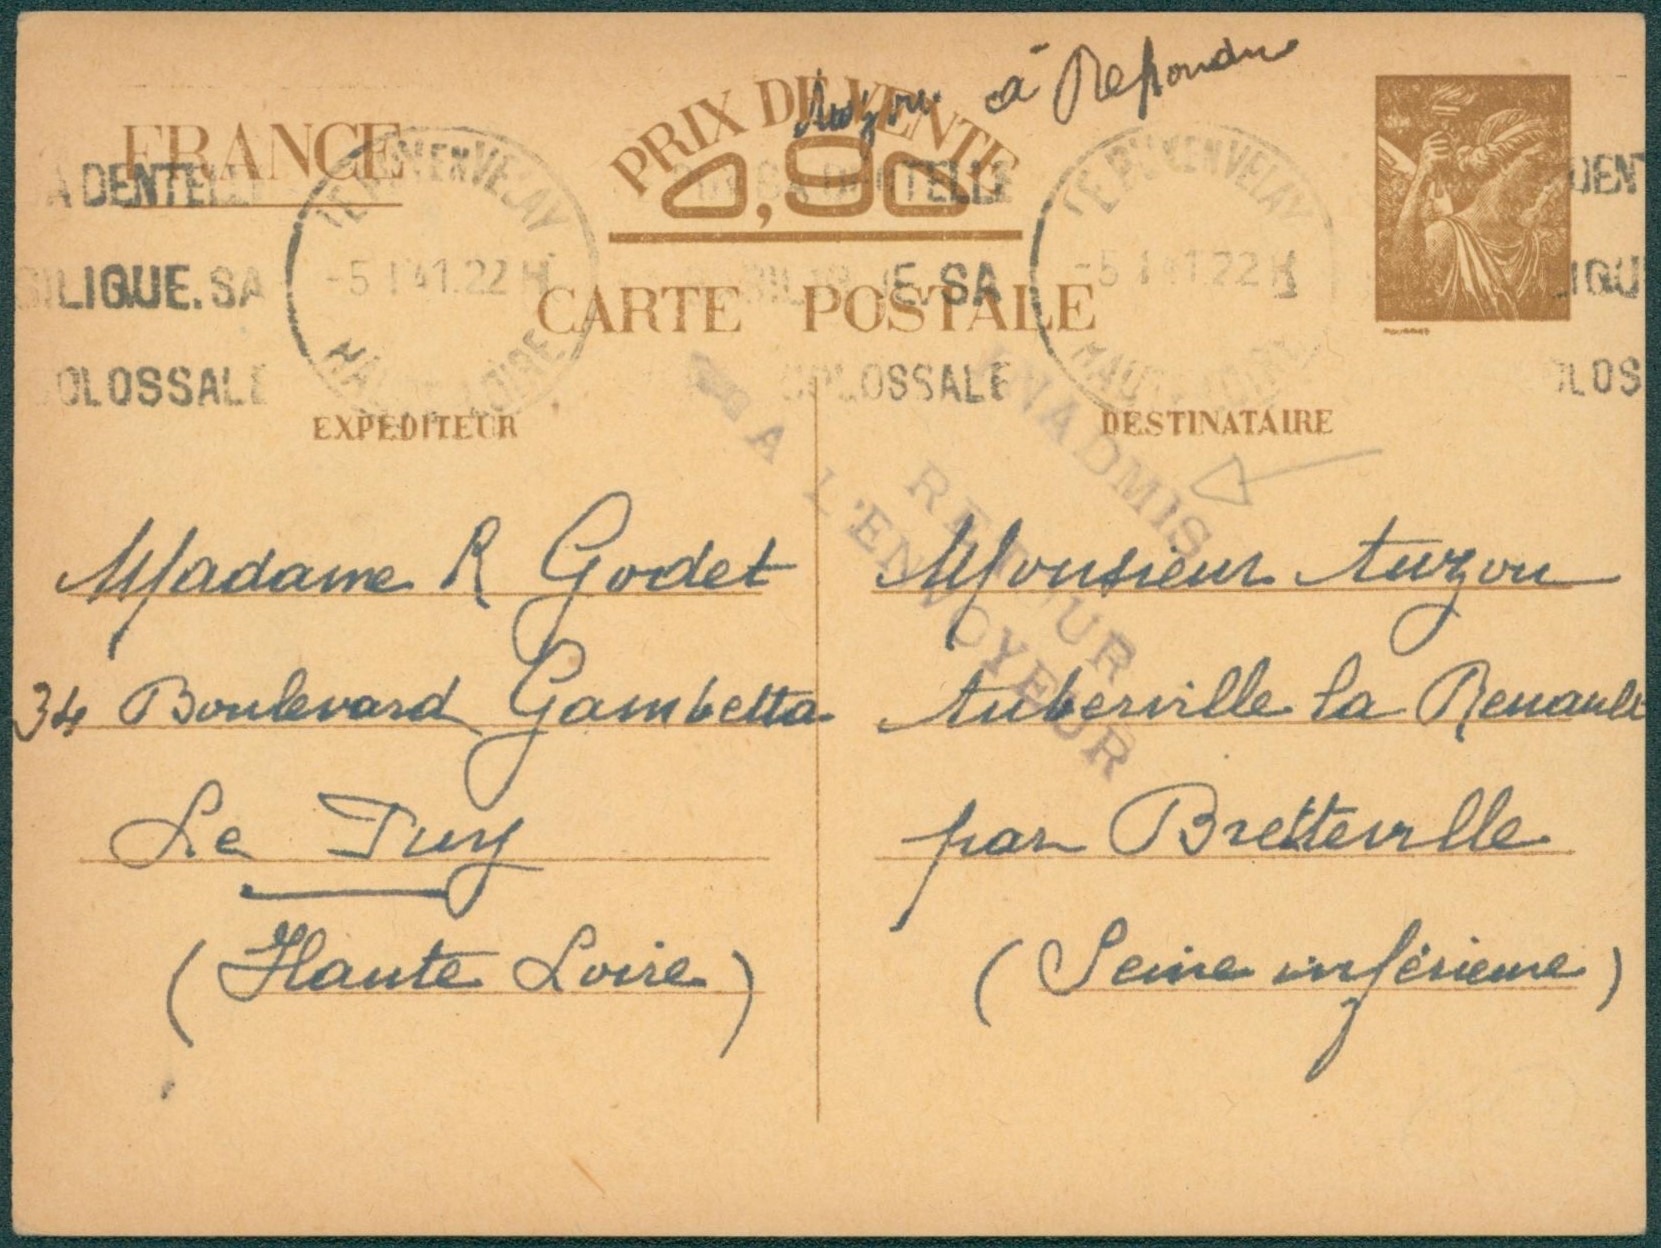 Auzou à Repondre
FRANCE
PRIX DE VENTE
0,90
CARTE POSTALE
A DENTELLE
DENTELLE
DEN
ILIQUE.SA
E.SA
IQU
OLOSSALE
OLOSSALE
LOS
LE PUY EN VELAY
-5 1 41.22H
HAUTE LOIRE
LE PUY EN VELAY
-5 1 41.22H
HAUTE LOIRE
INADMIS
RETOUR
A L'ENVOYEUR
EXPÉDITEUR
Madame R Godet
34 Boulevard Gambetta
Le Puy
(Haute Loire)
DESTINATAIRE
Monsieur Auzou
Auberville la Renault
par Bretteville
(Seine inférieure)